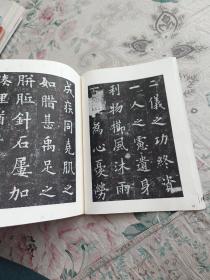 二儀之功終資
一人之慮遺身
利物櫛風沐雨
為心憂勞
成疾同堯肌之
如腊甚禹足之
胼胝針石屢加